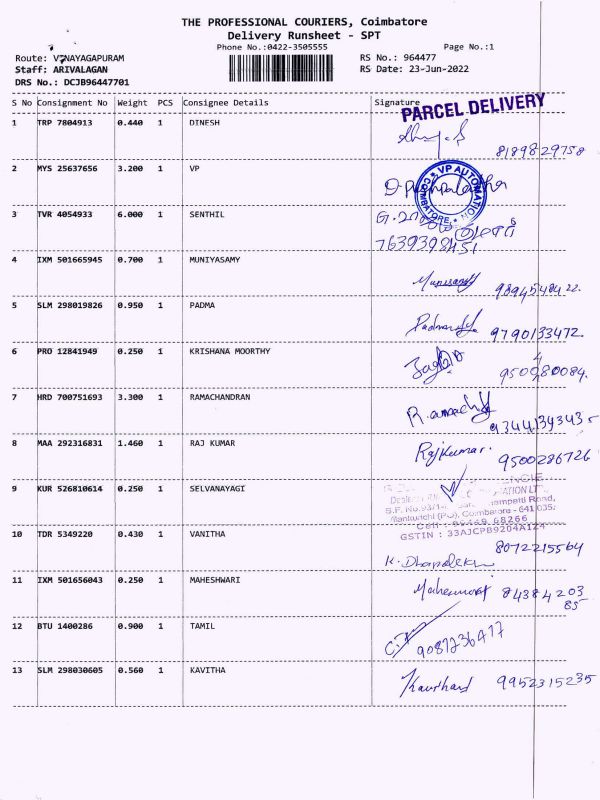 THE PROFESSIONAL COURIERS, Coimbatore
Delivery Runsheet - SPT
Phone No.:0422-3505555 Page No.:1
Route: VINAYAGAPURAM RS No.: 964477
Staff: ARIVALAGAN RS Date: 23-Jun-2022
DRS No.: DCJB96447701
S No Consignment No Weight PCS Consignee Details Signature
PARCEL DELIVERY
1 TRP 7804913 0.440 1 DINESH
8189829758
2 MYS 25637656 3.200 1 VP
VP AUTOMATION COIMBATORE
3 TVR 4054933 6.000 1 SENTHIL
7639398451
4 IXM 501665945 0.700 1 MUNIYASAMY
5 SLM 298019826 0.950 1 PADMA
9790133472.
6 PRO 12841949 0.250 1 KRISHANA MOORTHY
7 HRD 700751693 3.300 1 RAMACHANDRAN
8 MAA 292316831 1.460 1 RAJ KUMAR
Rajkumar. 9500286726
9 KUR 526810614 0.250 1 SELVANAYAGI
S.F. No.93/1
Coimbatore - 641 035.
GSTIN : 33AJCPB9204A1Z4
10 TDR 5349220 0.430 1 VANITHA
8072215564
11 IXM 501656043 0.250 1 MAHESHWARI
84384203
85
12 BTU 1400286 0.900 1 TAMIL
9087236417
13 SLM 298030605 0.560 1 KAVITHA
9952315235